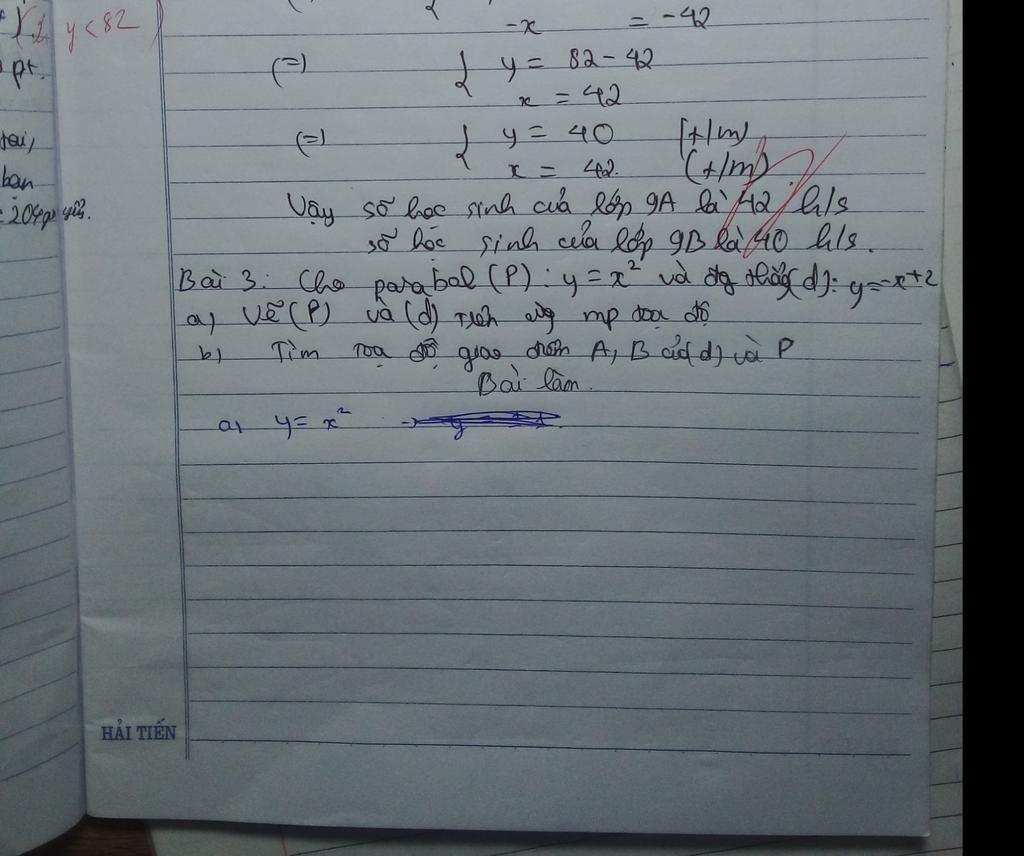 y < 82
pt.
-x = -42
(=) { y = 82 - 42
x = 42
(=) { y = 40 (t/m)
x = 42. (t/m)
bạn
Vậy số học sinh của lớp 9A là 42 h/s
số học sinh của lớp 9B là 40 h/s.
Bài 3: Cho parabal (P): y = x² và đg thẳg (d): y = -x+2
a) Vẽ (P) và (d) mp toạ độ
b) Tìm toạ độ giao điểm A, B của (d) và P
Bài làm.
a) y = x²
HẢI TIẾN